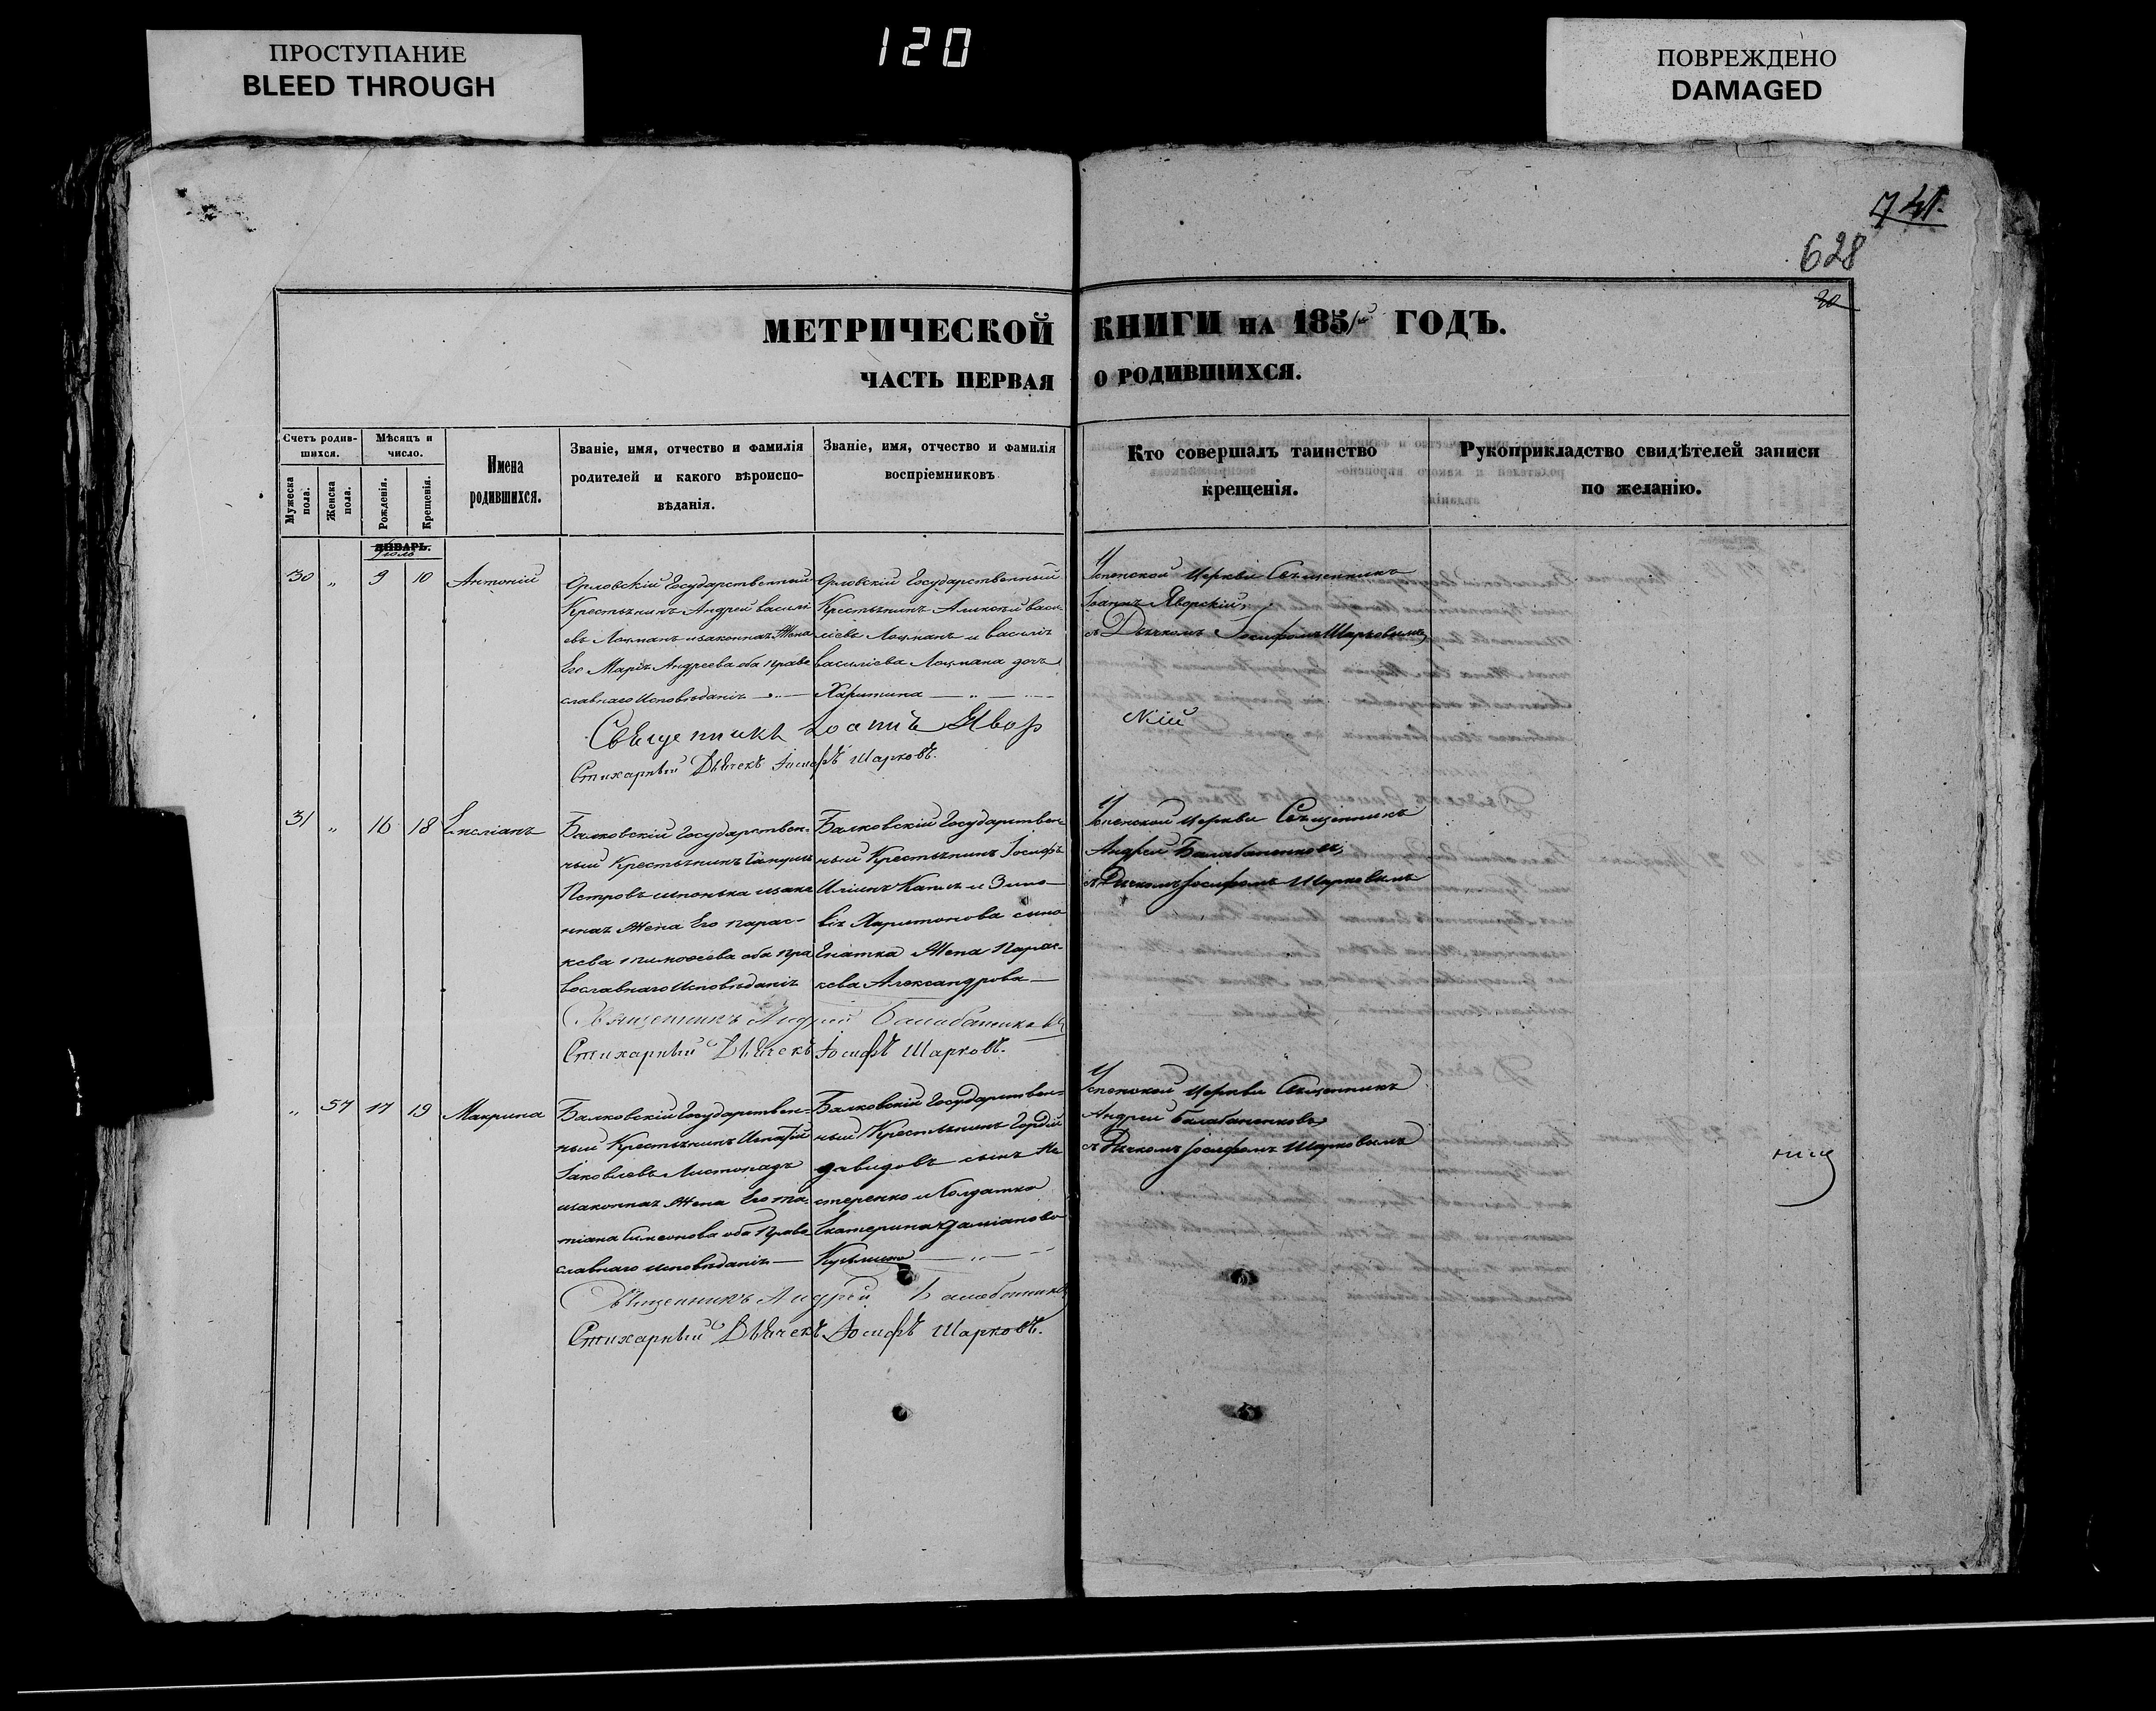 ПРОСТУПАНИЕ
BLEED THROUGH
120
ПОВРЕЖДЕНО
DAMAGED
741.
628
МЕТРИЧЕСКОЙ КНИГИ НА 185 ГОДЪ.
ЧАСТЬ ПЕРВАЯ О РОДИВШИХСЯ.
Счетъ родив-
шихся.
Мужеска пола.
Женска пола.
Мѣсяцъ и
число.
Рожденія.
Крещенія.
Имена
родившихся.
Званіе, имя, отчество и фамилія
родителей и какого вѣроиспо-
вѣданія.
Званіе, имя, отчество и фамилія
воспріемниковъ
Кто совершалъ таинство
крещенія.
Рукоприкладство свидѣтелей записи
по желанію.
ЯНВАРЬ.
Іюль
30 „ 9 10 Антоній
Орловскій Государственный
Крестьянинъ Андрей Василі
евъ Лоцманъ изаконная Жена
Его Марія Андреева оба Право
славнаго Исповѣданія
Орловскій Государственный
Крестьянинъ Алексѣй Васи-
ліевъ Лоцманъ и Василія
Василіева Лоцмана дочь
Харитина
Успенской Церкви Священникъ
Іоаннъ Яворскій,
съ Дьячкомъ Іосифомъ Шарковымъ
Священникъ Іоаннъ Явор скій
Стихарный Дьячекъ Іосифъ Шарковъ.
31 „ 16 18 Емліанъ
Балковскій Государствен-
ный Крестьянинъ
Петровъ изако
нная Жена Его Парас-
кева Тимофеева оба Пра
вославнаго Исповѣданія
Балковскій Государствен-
ный Крестьянинъ Іосифъ
Иліинъ и Зино-
вія Харитонова сына
Жена Парас-
кева Александрова
Успенской Церкви Священникъ
Андрей Балабаненковъ,
съ Дьячкомъ Іосифомъ Шарковымъ
Священникъ Андрей Балабаненковъ
Стихарный Дьячекъ Іосифъ Шарковъ.
„ 57 17 19 Макрина
Балковскій Государствен-
ный Крестьянинъ Игнатій
Іаковлевъ Листопадъ
изаконная Жена Его Та-
тіана Симеонова оба Право
славнаго исповѣданія
Балковскій Государствен-
ный Крестьянинъ Гордій
Давидовъ сынъ Не
стеренко и Солдатка
Екатерина Даміанова
Успенской Церкви Священникъ
Андрей Балабаненковъ
съ Дьячкомъ Іосифомъ Шарковымъ
Священникъ Андрей Балабаненковъ
Стихарный Дьячекъ Іосифъ Шарковъ.